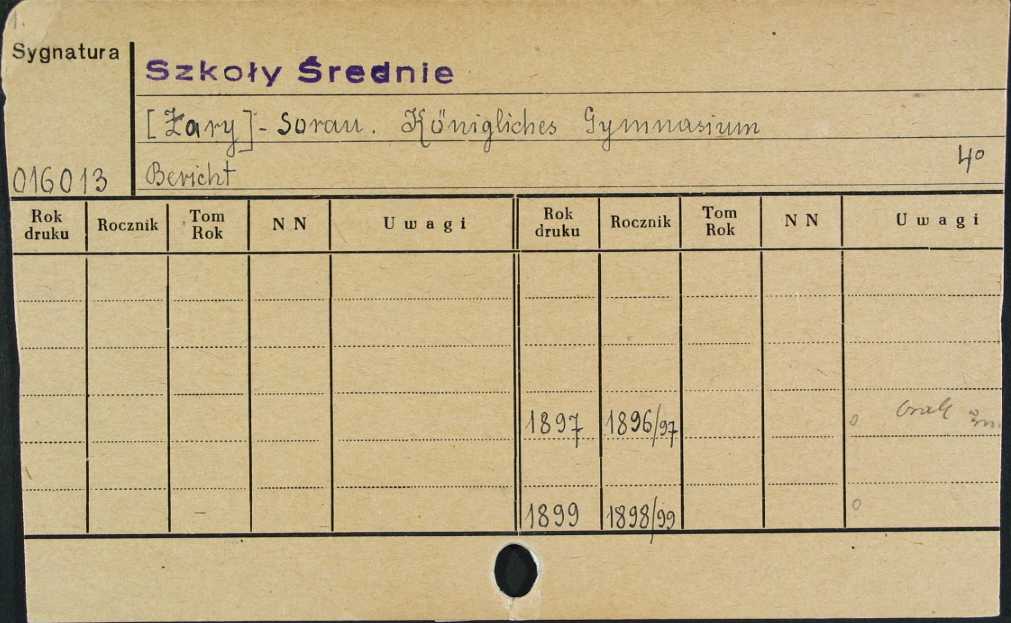 1.
Sygnatura
Szkoły Średnie
[Żary] - Sorau. Königliches Gymnasium
4º
016013 Bericht
Rok druku Rocznik Tom Rok NN Uwagi Rok druku Rocznik Tom Rok NN Uwagi
1897 1896/97 0 brak
1899 1898/99 0